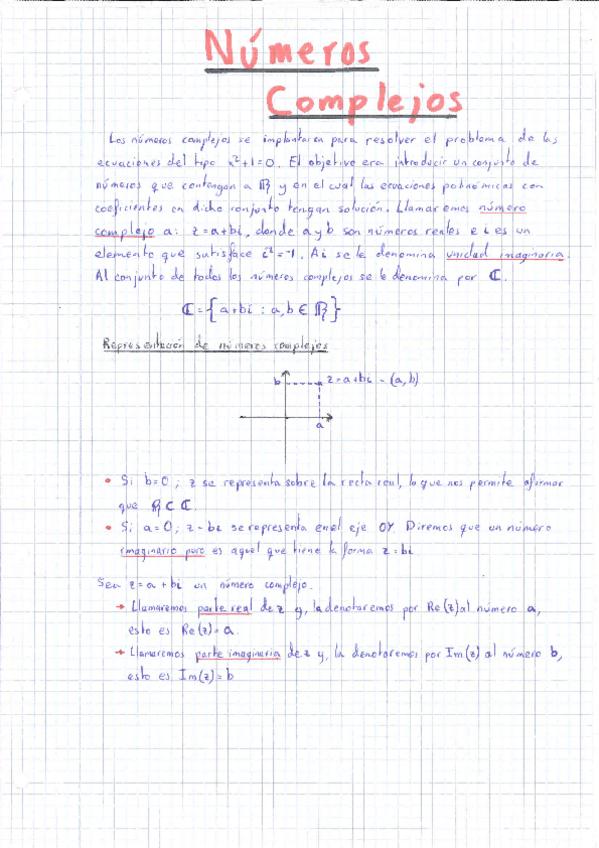 Números
Complejos
Los números complejos se implantaron para resolver el problema de las
ecuaciones del tipo x²+1=0. El objetivo era introducir un conjunto de
números que contengan a ℝ y en el cual las ecuaciones polinómicas con
coeficientes en dicho conjunto tengan solución. Llamaremos número
complejo a: z=a+bi, donde a y b son números reales e i es un
elemento que satisface i²=-1. A i se le denomina unidad imaginaria.
Al conjunto de todos los números complejos se le denomina por ℂ.
ℂ={a+bi : a,b∈ℝ}
Representación de números complejos
b z=a+bi - (a,b)
a
• Si b=0; z se representa sobre la recta real, lo que nos permite afirmar
que ℝ⊂ℂ.
• Si a=0; z=bi se representa en el eje OY. Diremos que un número
imaginario puro es aquel que tiene la forma z=bi
Sea z=a+bi un número complejo.
→ Llamaremos parte real de z y, la denotaremos por Re(z) al número a,
esto es Re(z)=a.
→ Llamaremos parte imaginaria de z y, la denotaremos por Im(z) al número b,
esto es Im(z)=b